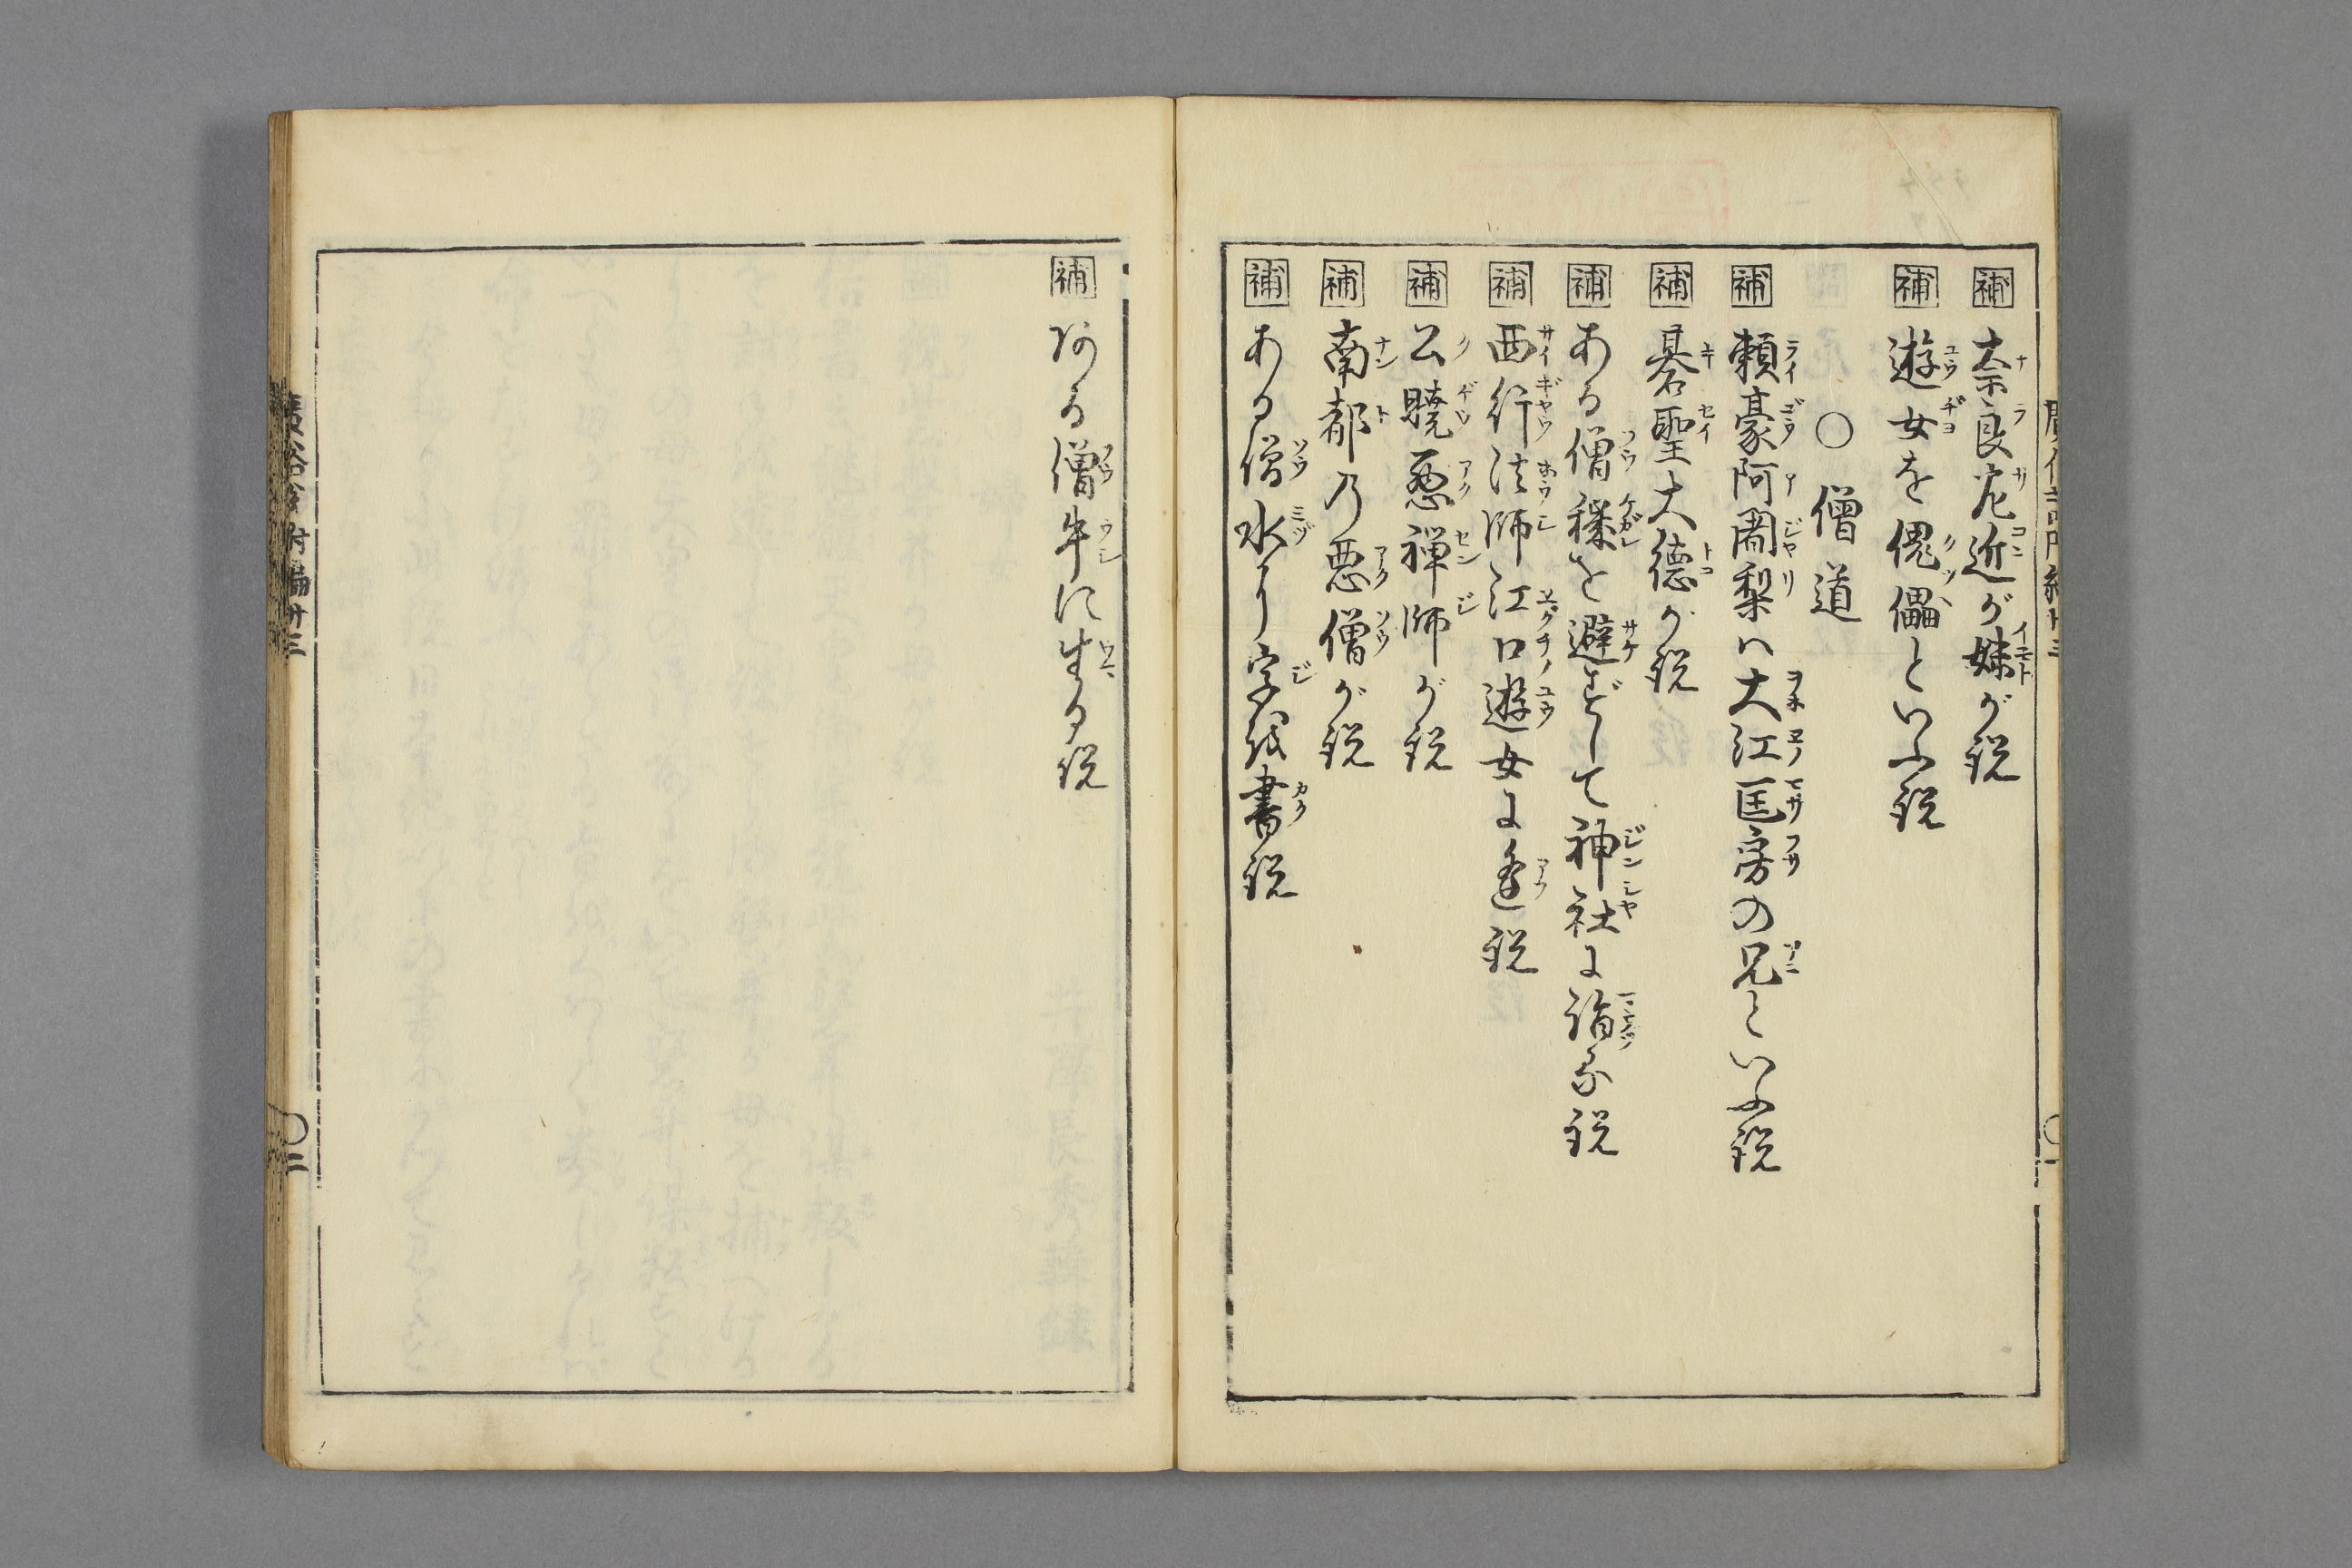 補 奈良左近が妹が説
補 遊女を傀儡といふ説
○ 僧道
補 頼豪阿闍梨ハ大江匡房の兄といふ説
補 碁聖大徳が説
補 ある僧穢を避ずして神社に詣る説
補 西行法師江口遊女に逢説
補 公暁悪禅師が説
補 南都乃悪僧が説
補 ある僧水より字紙書説
補 ある僧牛に生る説
廣益俗説辨附編廿三
○二